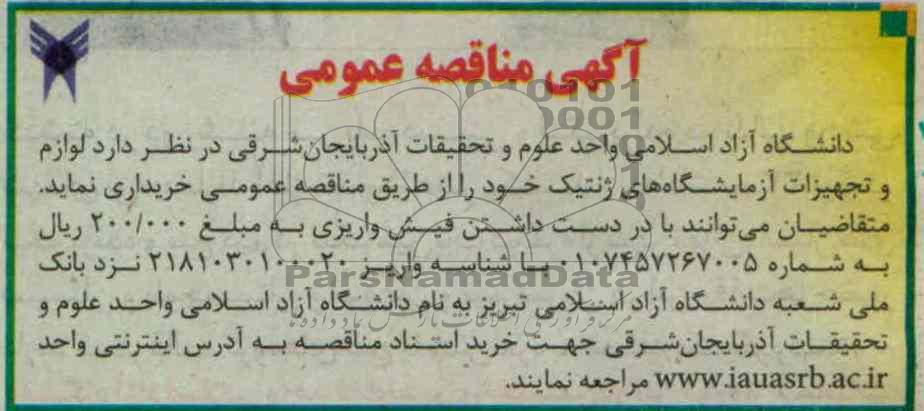 آگهی مناقصه عمومی
دانشگاه آزاد اسلامی واحد علوم و تحقیقات آذربایجان‌شرقی در نظر دارد لوازم
و تجهیزات آزمایشگاه‌های ژنتیک خود را از طریق مناقصه عمومی خریداری نماید.
متقاضیان می‌توانند با در دست داشتن فیش واریزی به مبلغ ۲۰۰/۰۰۰ ریال
به شماره ۰۱۰۷۴۵۷۲۶۷۰۰۵ با شناسه واریز ۲۱۸۱۰۳۰۱۰۰۰۰۲۰ نزد بانک
ملی شعبه دانشگاه آزاد اسلامی تبریز به نام دانشگاه آزاد اسلامی واحد علوم و
تحقیقات آذربایجان‌شرقی جهت خرید اسناد مناقصه به آدرس اینترنتی واحد
www.iauasrb.ac.ir مراجعه نمایند.
ParsNamadData